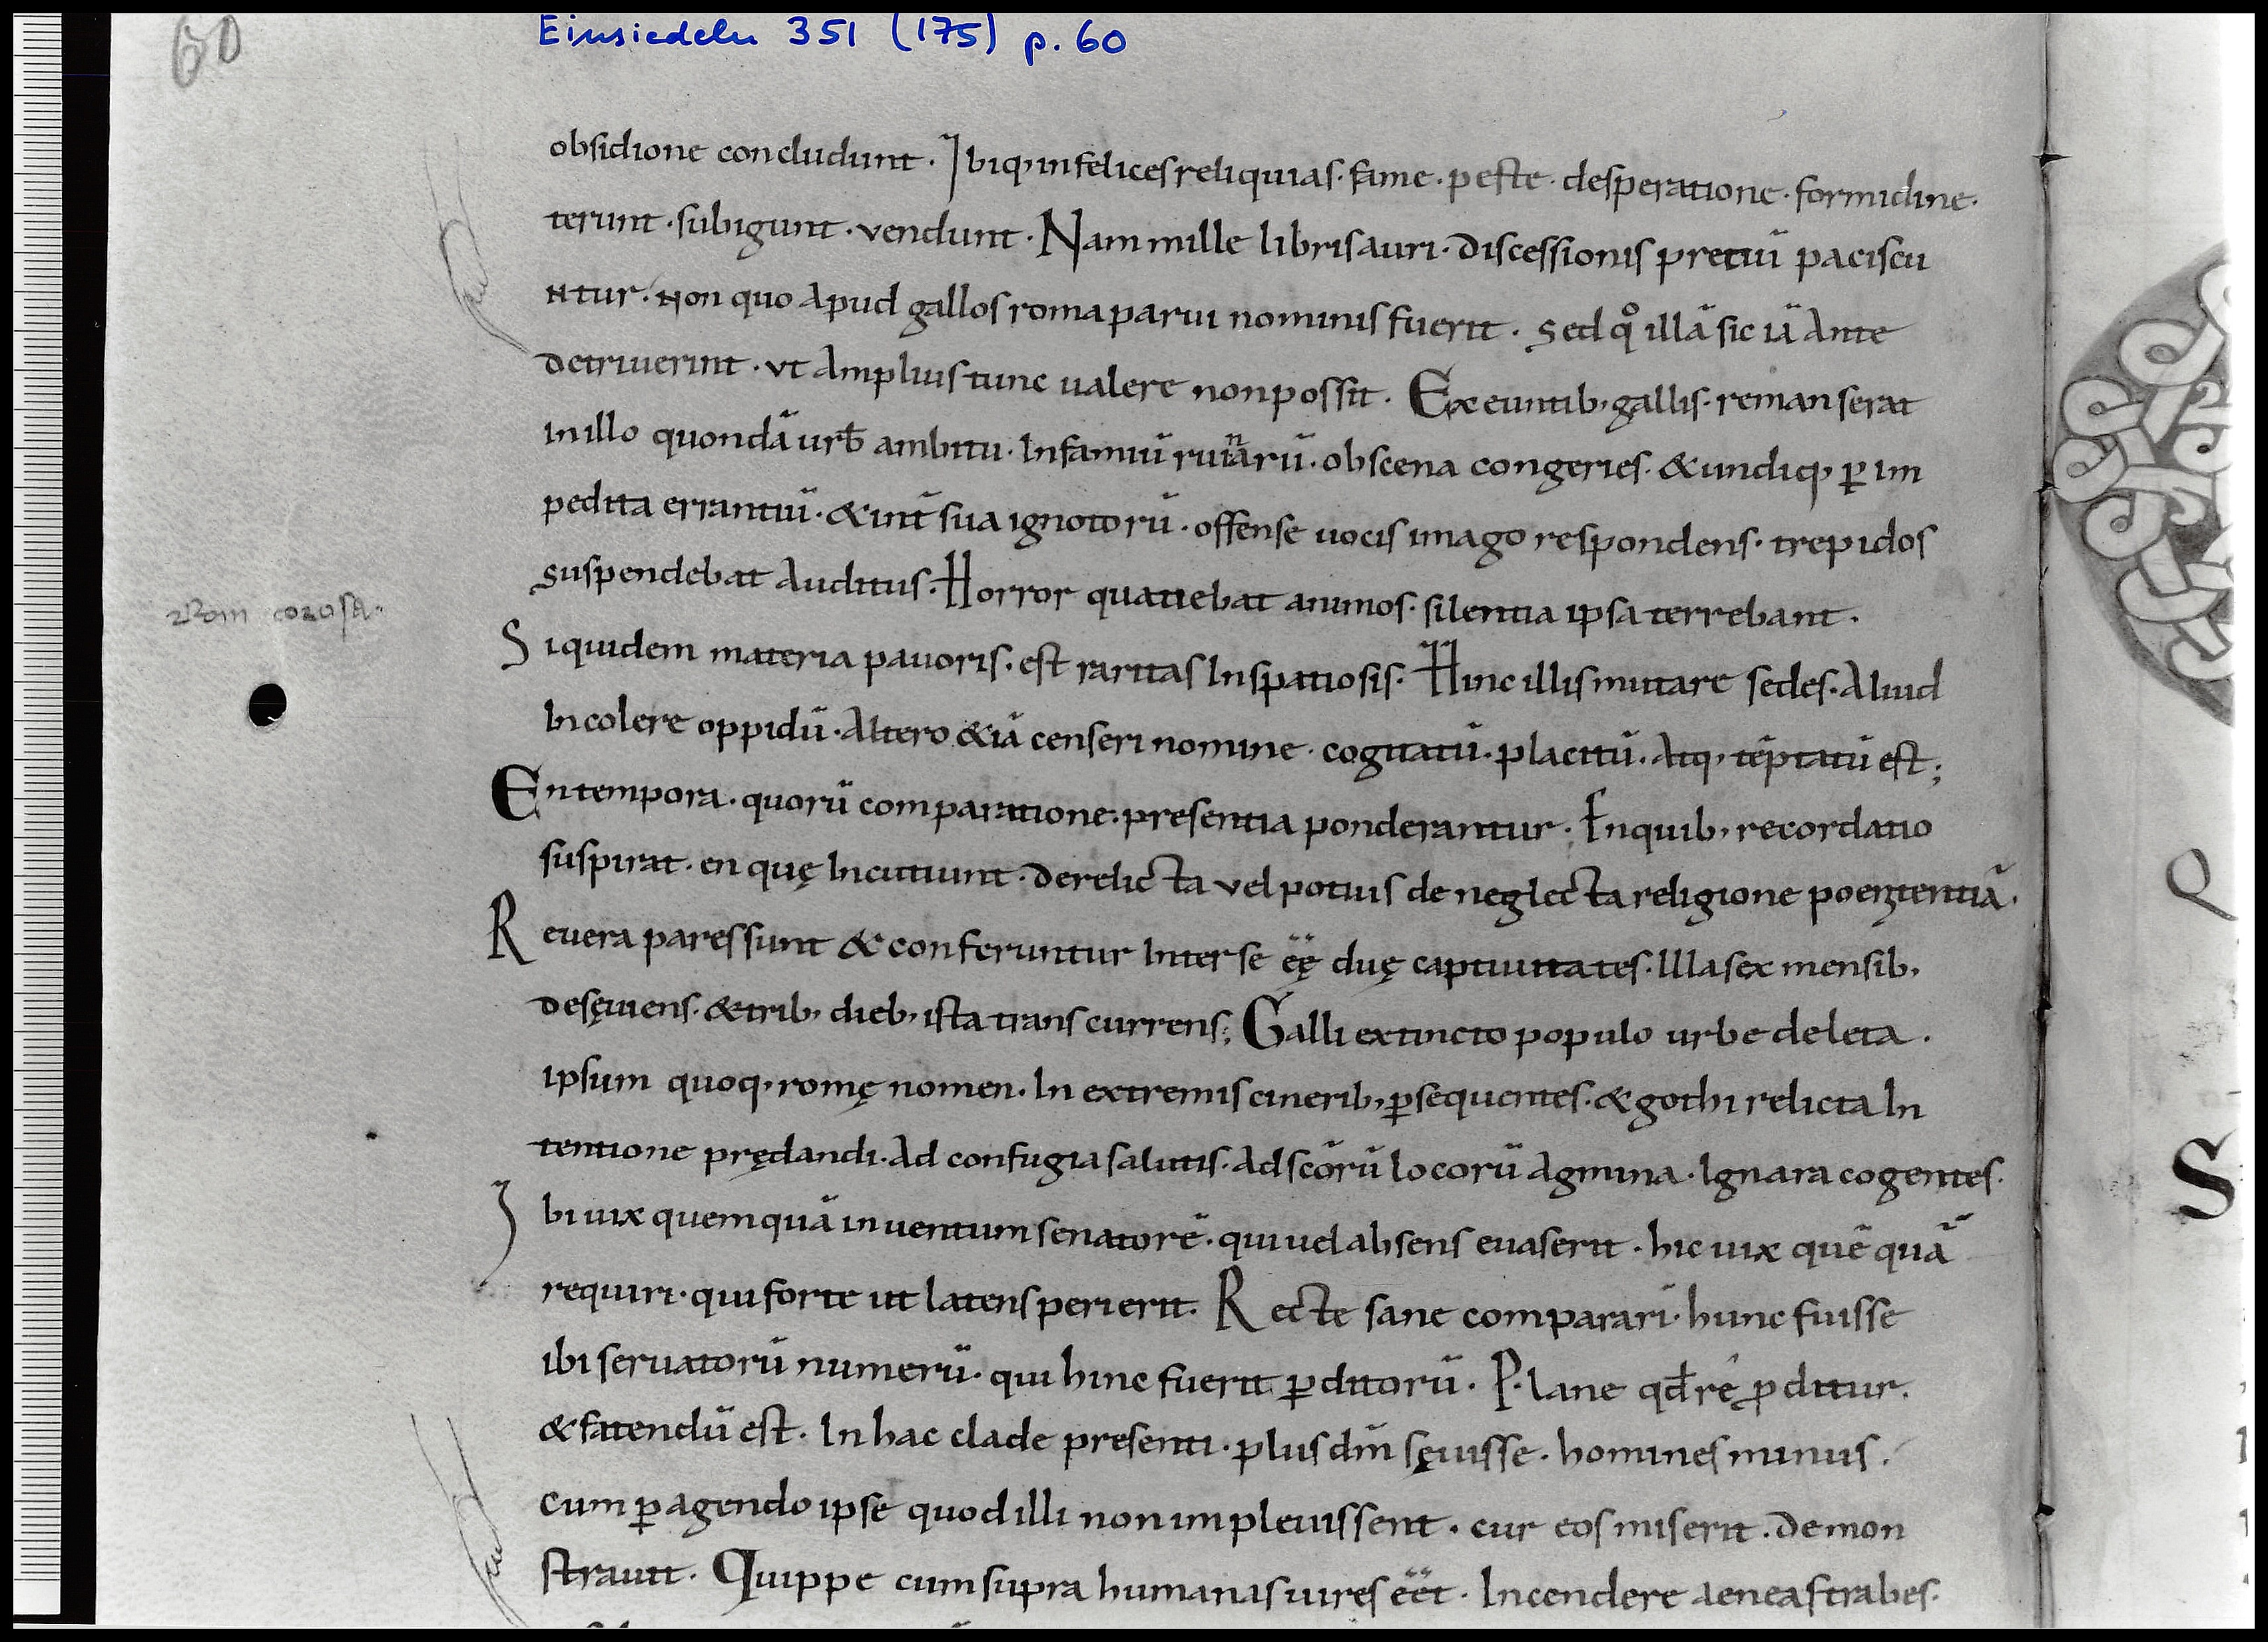 60
Einsiedeln 351 (175) p. 60
obsidione concludunt · Ibiq, infelices reliquias · fame · peste · desperatione · formidine ·
terunt · subigunt · vendunt · Nam mille libris auri · discessionis pretiū paciscu
ntur · non quo apud gallos roma parui nominis fuerit · sed qͦ illā sic iā ante
detriuerint · vt amplius tunc ualere non possit · Exeuntib, gallis · remanserat
in illo quondā urƀ ambitu · Infamiū ruinarū · obscena congeries · & undiq, ꝑ im
pedita errantiū · & int̄ sua ignotorū · offense uocis imago respondens · trepidos
suspendebat auditus · Horror quatiebat animos · silentia ipsa terrebant ·
Siquidem materia pauoris · est raritas In spatiosis · Hinc illis mutare sedes · Aliud
Incolere oppidū · Altero &iā censeri nomine · cogitatū · placitū · Atq, tēptatū est ;
En tempora · quorū comparatione · presentia ponderantur · En quib, recordatio
suspirat · en quę Incutiunt · derelicta vel potius de neglecta religione poenitentiā ·
Reuera pares sunt & conferuntur Inter se ęę duę captiuitates · Illa sex mensib,
desęuiens · & trib, dieb, ista transcurrens ; Galli extincto populo urbe deleta ·
ipsum quoq, romę nomen · In extremis cinerib, ꝑsequentes · & gothi relicta In
tentione prędandi · Ad confugia salutis · Ad scōrū locorū Agmina · Ignara cogentes ·
Ibi uix quemquā inuentum senatorē · qui uel absens euaserit · hic uix quē quā
requiri · qui forte ut latens perierit · Recte sane comparari · hunc fuisse
ibi seruatorū numerū · qui hinc fuerit ꝑditorū · Plane qđ rē ꝓditur ·
& fatendū est · In hac clade presenti · plus dm̄ sęuisse · homines minus ·
cum ꝑagendo ipse quod illi non impleuissent · cur eos miserit · demon
strauit · Quippe cum supra humanas uires eēt · Incendere aeneas trabes ·